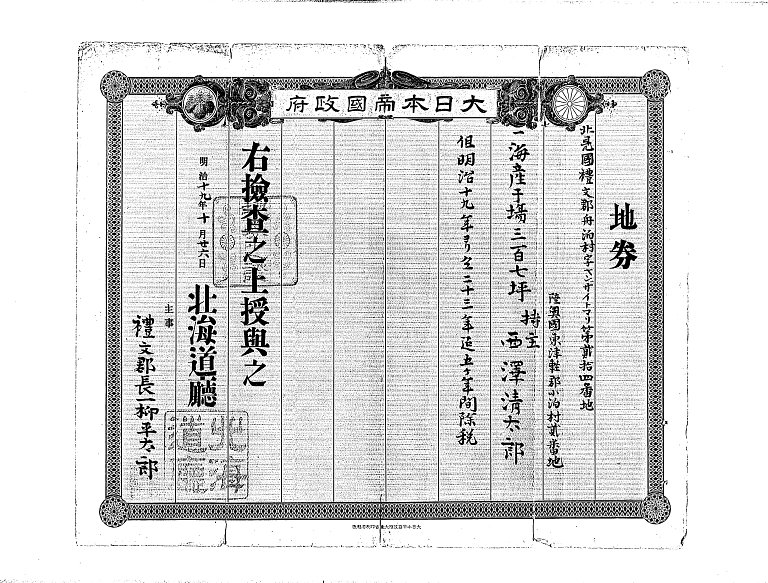 大日本帝國政府
地券
北見國禮文郡舟泊村字サンナイトマリ第貳拾四番地
陸奧國東津輕郡小泊村貳番地
持主 西澤清太郎
一海產干場三百七坪
但明治十九年ヨリ至二十三年迄五ヶ年間除税
右撿査之上授與之
明治十九年十月廿六日
北海道廳
主事
禮文郡長一柳平太郎
北海道廳